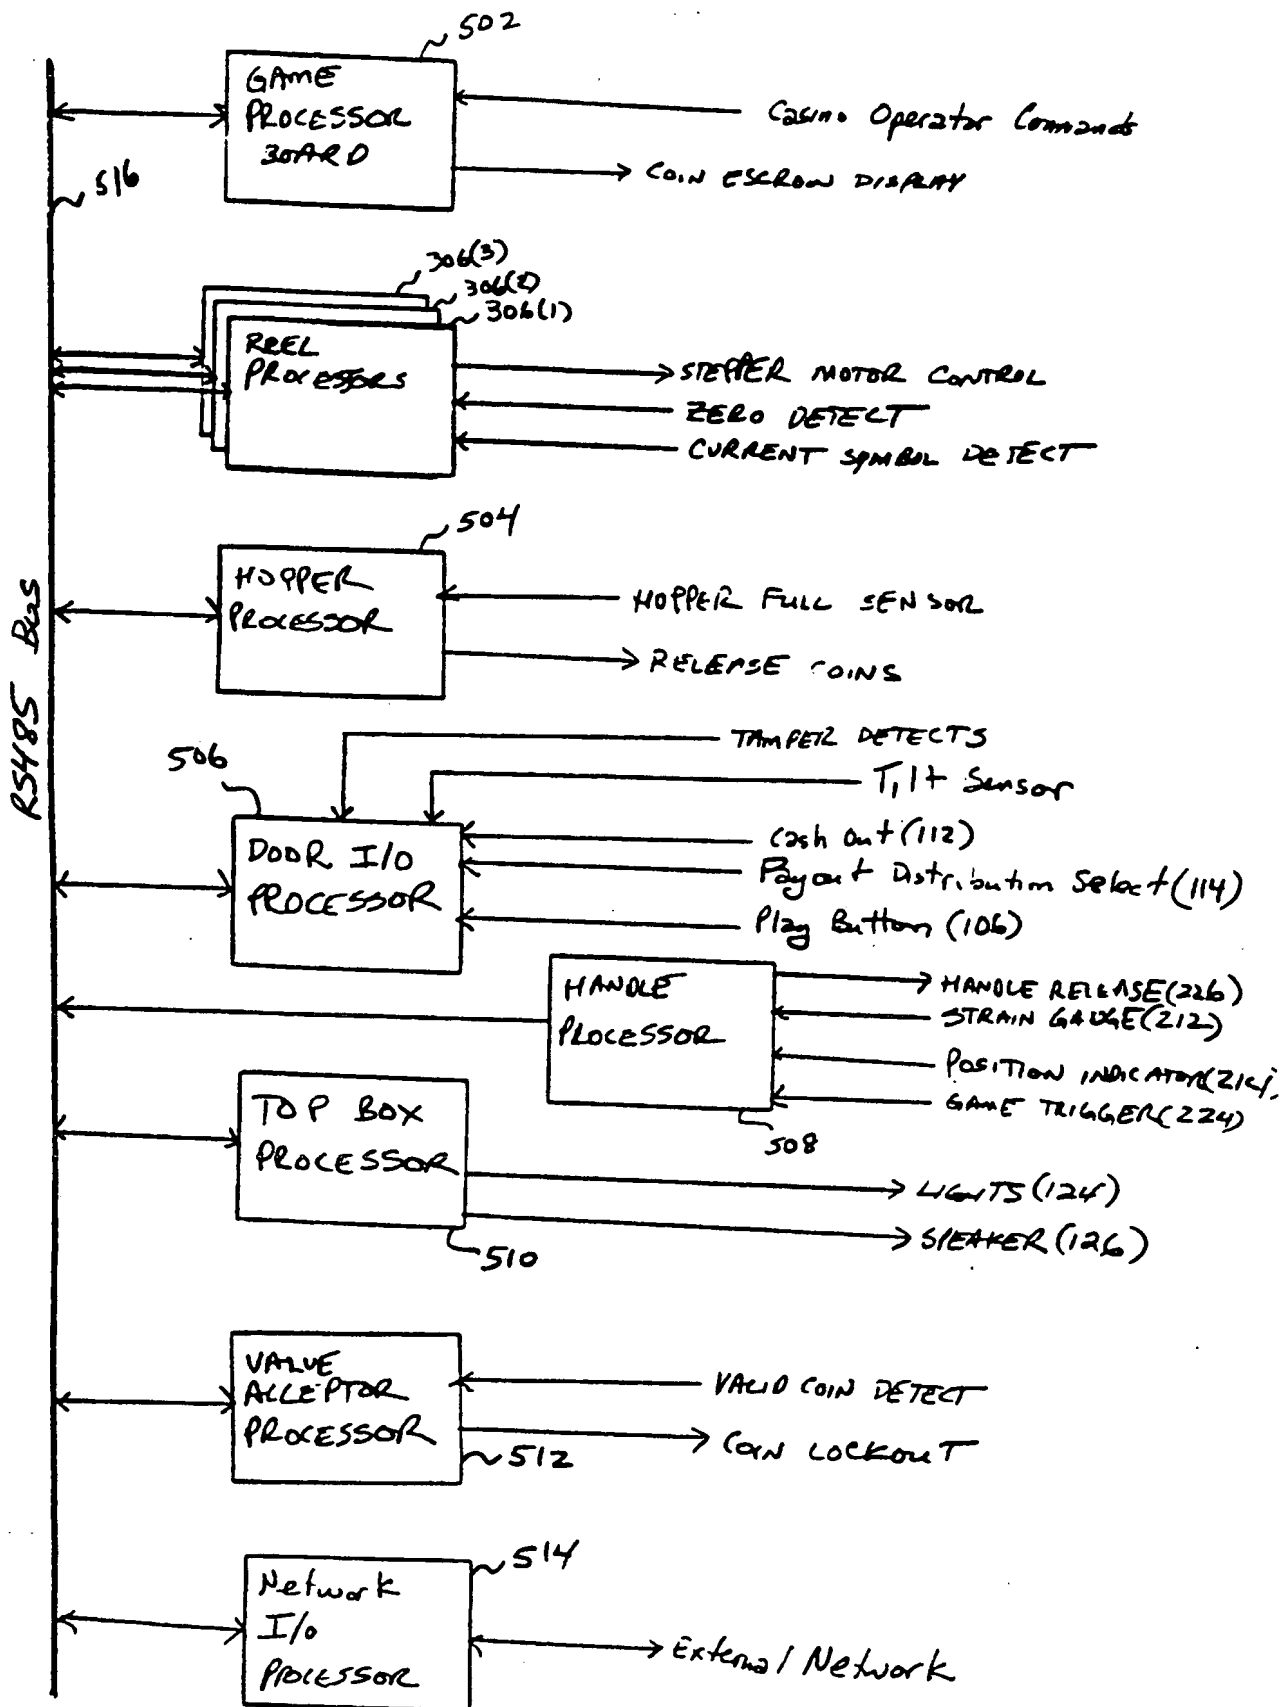 502
GAME
PROCESSOR
BOARD
Casino Operator Commands
COIN ESCROW DISPLAY
516
306(3)
306(2)
306(1)
REEL
PROCESSORS
STEPPER MOTOR CONTROL
ZERO DETECT
CURRENT SYMBOL DETECT
504
HOPPER
PROCESSOR
HOPPER FULL SENSOR
RELEASE COINS
RS485 Bus
506
TAMPER DETECTS
Tilt Sensor
DOOR I/O
PROCESSOR
Cash Out (112)
Payout Distribution Select (114)
Play Button (106)
HANDLE
PROCESSOR
HANDLE RELEASE (226)
STRAIN GAUGE (212)
POSITION INDICATOR (214)
GAME TRIGGER (224)
508
TOP BOX
PROCESSOR
LIGHTS (124)
SPEAKER (126)
510
VALUE
ACCEPTOR
PROCESSOR
VALID COIN DETECT
COIN LOCKOUT
512
514
Network
I/O
PROCESSOR
External Network